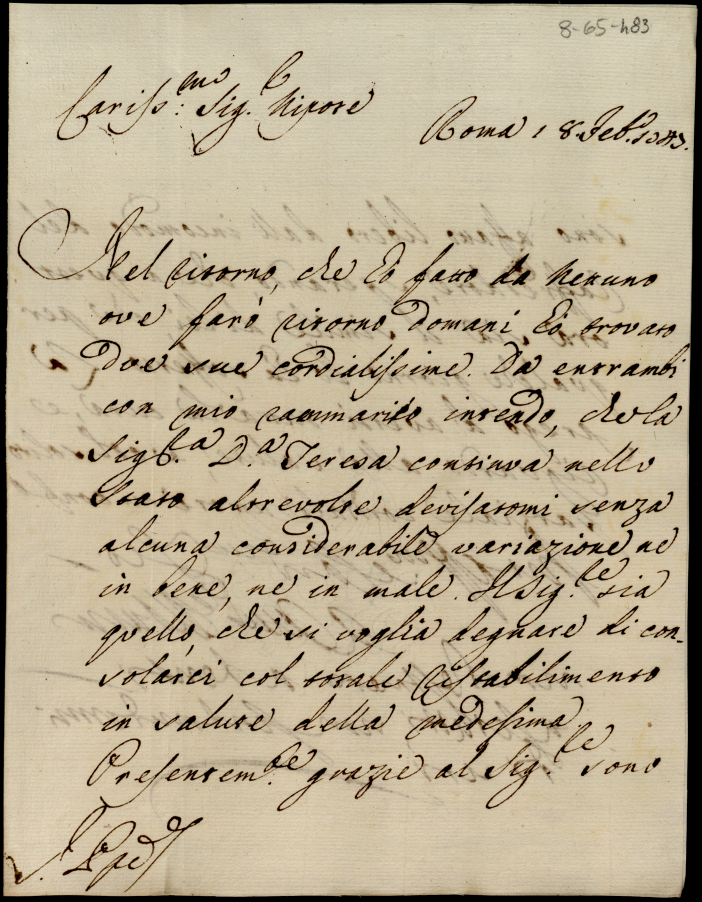 8-65-483
Cariss:mo Sig.e Nipote
Roma 18. Feb.o
Nel ritorno, che ò fatto da Nettuno
ove farò ritorno domani ò trovato
due sue cordialissime. Da entrambi
con mio rammarico intendo, che la
Sig.ra D.a Teresa continua nello
stato altrevolte devisatomi senza
alcuna considerabile variazione ne
in bene, ne in male. Il Sig.re sia
quello, che si voglia degnare di con-
solarci col totale ristabilimento
in salute della medesima
Presentem.te grazie al Sig.re sono